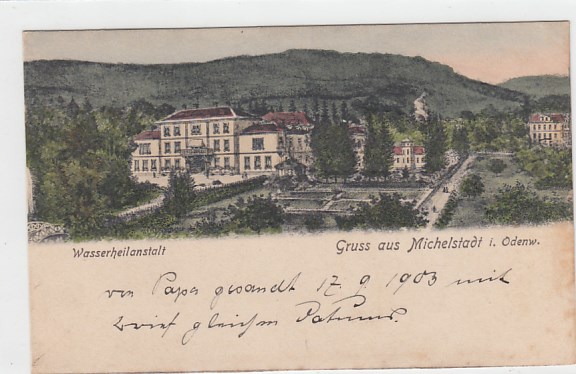 Wasserheilanstalt
Gruss aus Michelstadt i. Odenw.
von Papa gesandt 17. 9. 1903 mit
Brief gleichen Datums.